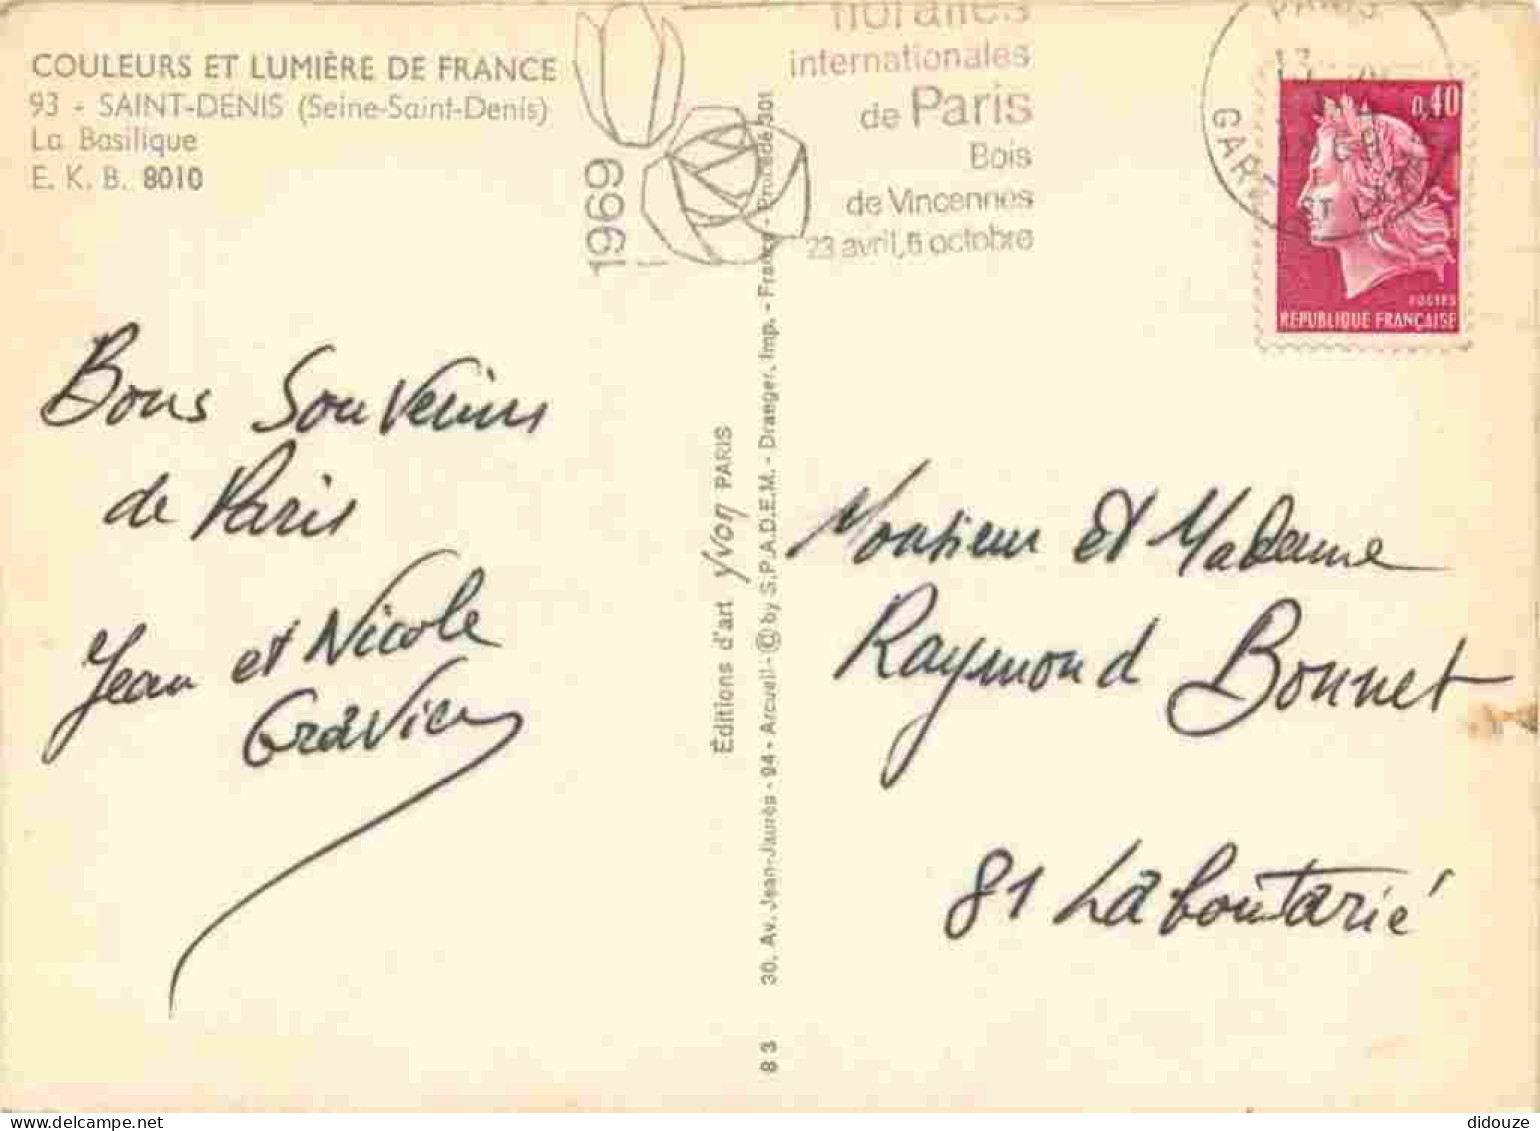 COULEURS ET LUMIÈRE DE FRANCE
93 - SAINT-DENIS (Seine-Saint-Denis)
La Basilique
E. K. B. 8010
1969
floralies
internationales
de Paris
Bois
de Vincennes
23 avril, 5 octobre
PARIS
13
69
GARE ST LAZARE
0,40
POSTES
REPUBLIQUE FRANÇAISE
Bons Souvenirs
de Paris
Jean et Nicole
Gravier
Éditions d'art Yvon PARIS
30, Av. Jean-Jaurès - 94 - Arcueil - © by S.P.A.D.E.M. - Draeger, Imp. - France - Procédé 301
83
Monsieur et Madame
Raymond Bonnet
81 Laboutarié
didouze